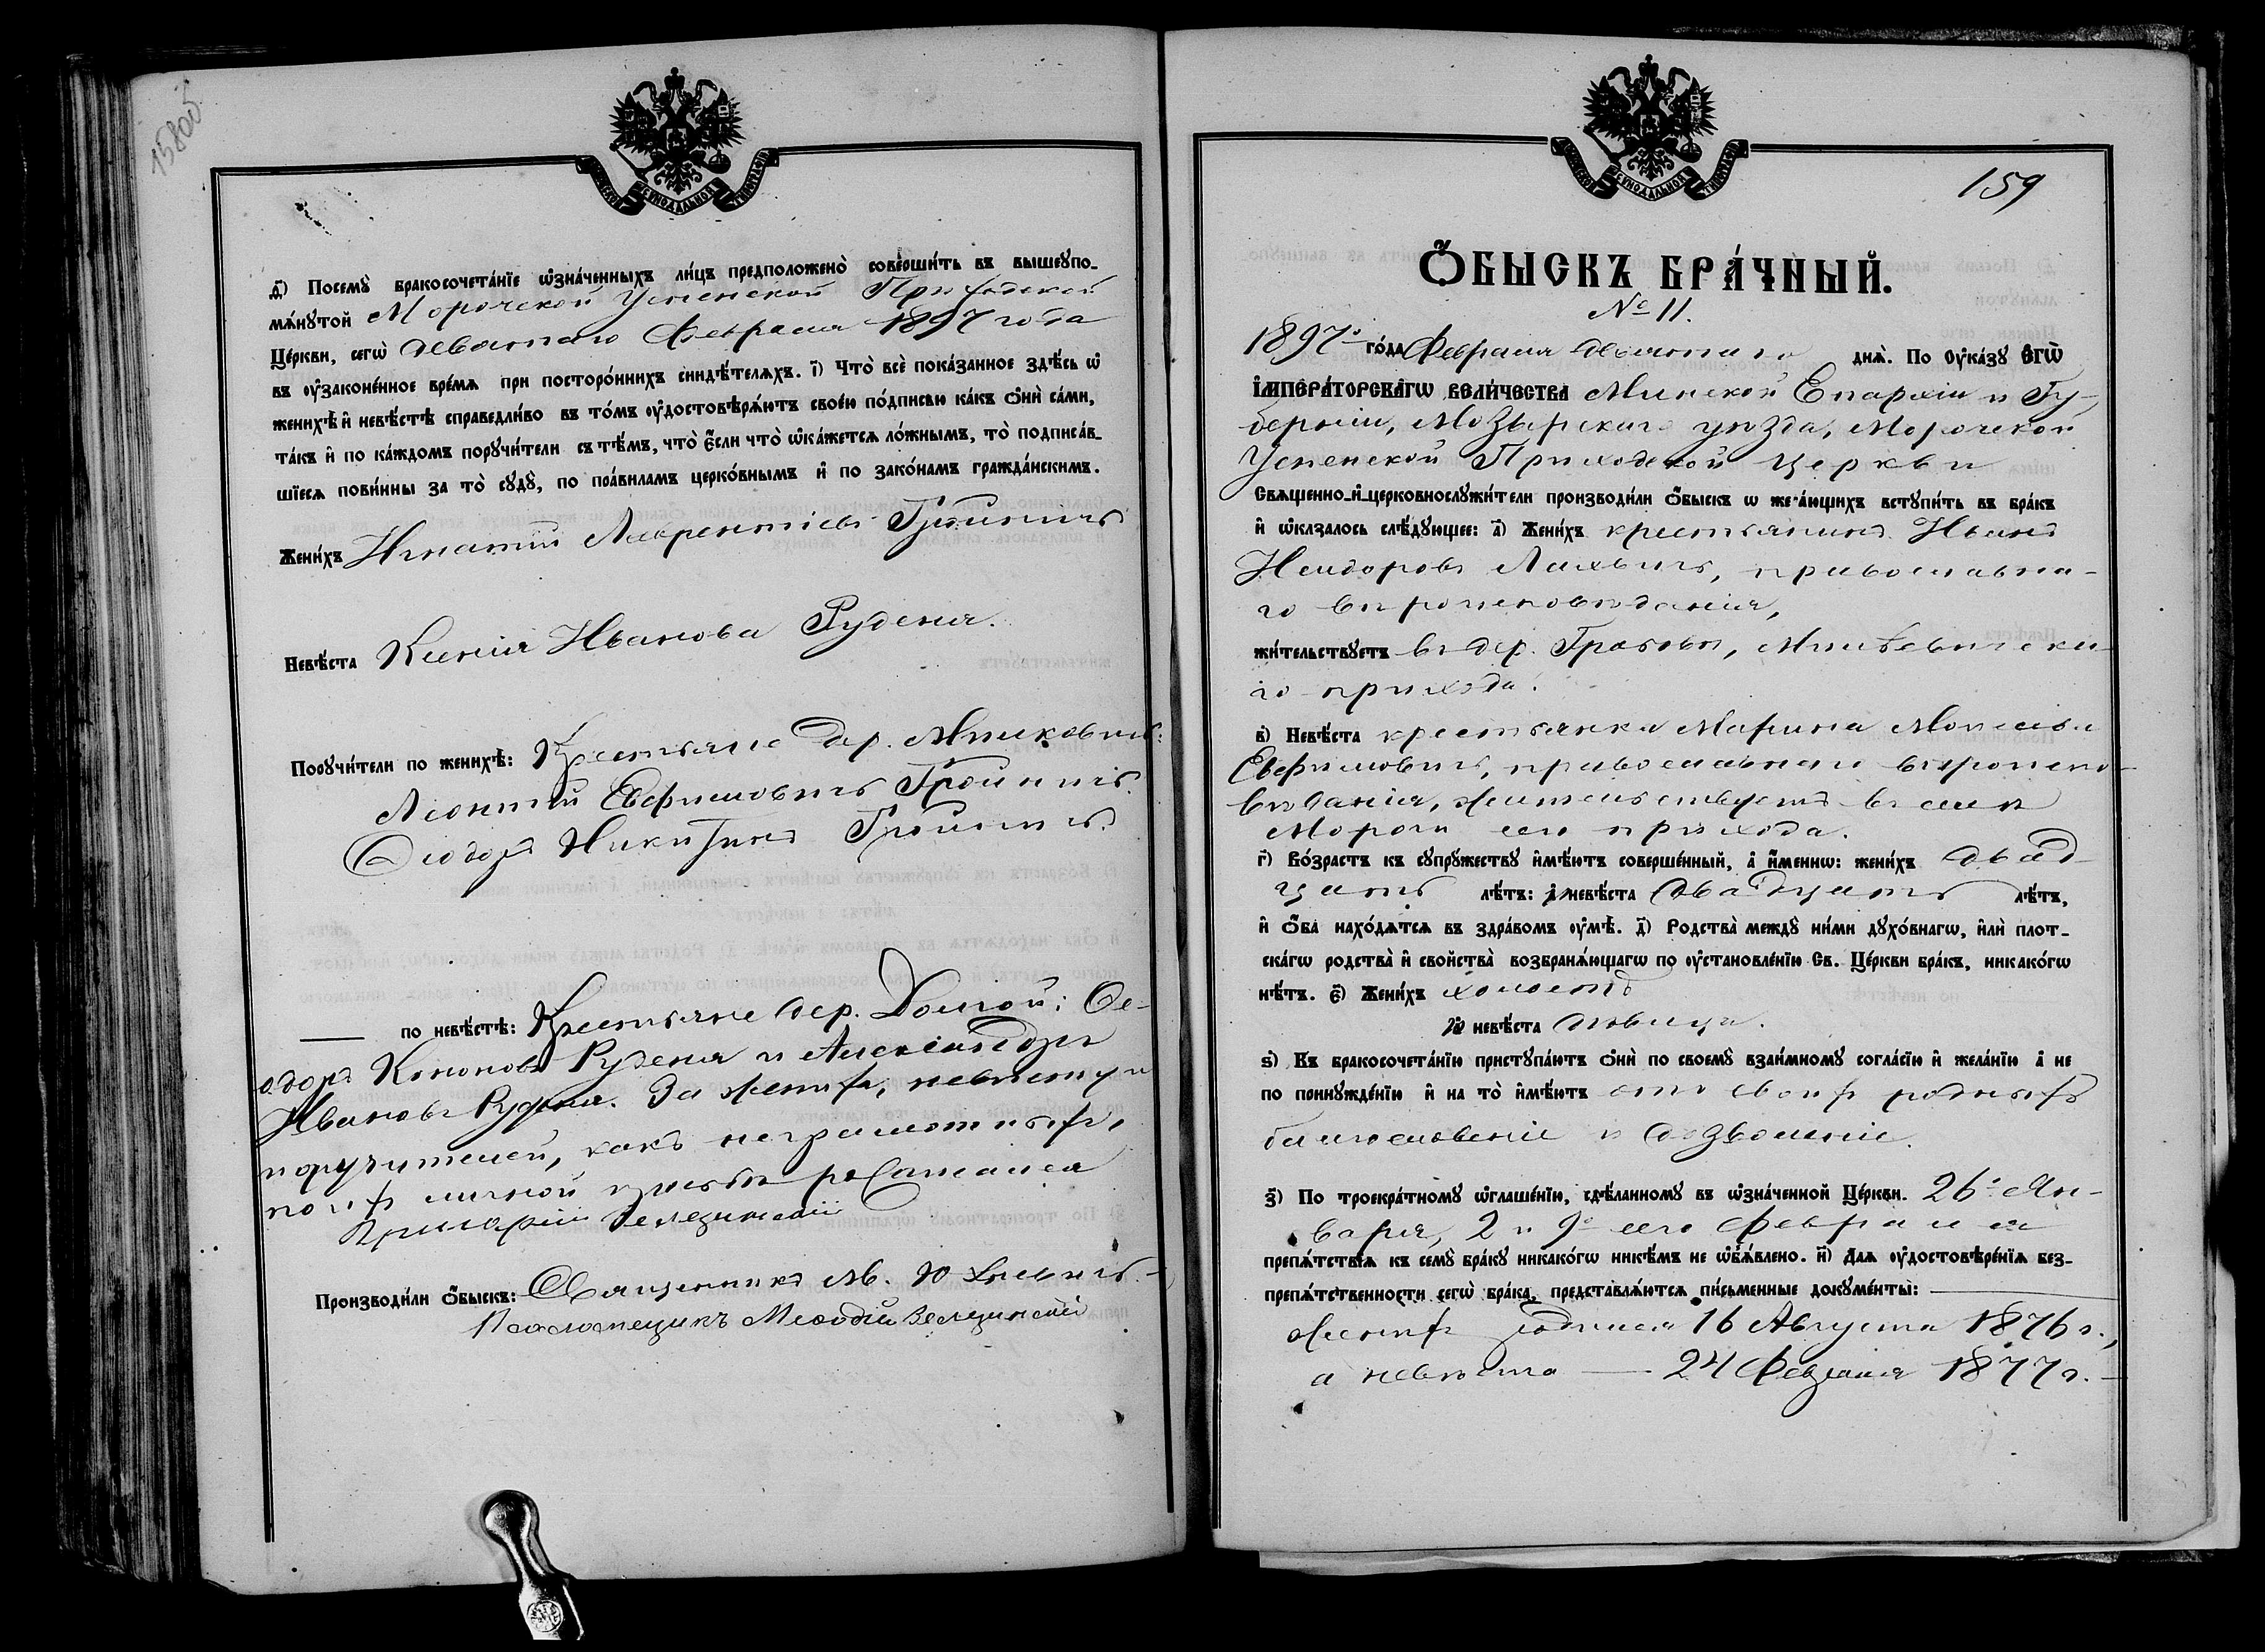 15800
д҃) Посемꙋ̀ бракосочета́нїе ѡ҆зна́ченныхъ ли́цъ предположено̀ соверши́ть въ вышеꙋпо-
мѧ́нꙋтой Морочской Успенской Приходской
Це́ркви, сегѡ̀ девятаго Февраля 1897 года
въ ᲂу҆законе́нное вре́мѧ при посторо́ннихъ свидѣ́телѧхъ. і҃) Что̀ всѐ пока́занное здѣ́сь ѡ҆
женихѣ̀ и҆ невѣ́стѣ справедли́во въ то́мъ ᲂу҆достовѣрѧ́ютъ свое́ю по́дписью ка́къ ѻ҆нѝ са́ми,
та́къ и҆ по ка́ждомъ порꙋчи́тели съ тѣ́мъ, что̀ є҆́сли что̀ ѡ҆ка́жетсѧ ло́жнымъ, то̀ подписа́в-
шїесѧ пови́нны за то̀ сꙋдꙋ̀, по пра́виламъ церко́внымъ и҆ по зако́намъ гражда́нскимъ.
Жени́хъ Игнатій Лаврентіевъ Гричичъ
Невѣ́ста Ксенія Иванова Руденя.
Порꙋчи́тели по женихѣ̀: Крестьяне дер.
Леонтій Евфимовичъ
Ѳеодоръ Никитинъ
по невѣ́стѣ: Крестьяне дер. Долгой: Ѳе-
одоръ Кононовъ Руденя и Александръ
Ивановъ Руденя. За жениха, невѣсту и
поручителей, какъ неграмотныхъ,
по ихъ личной просьбѣ росписался
Григорій Зелезинскій
Производи́ли ѻ҆́быскъ: Священникъ
Псаломщикъ Меѳодій Зелезинскій
159
Ѻ҆́БЫСКЪ БРА́ЧНЫЙ.
№ 11.
1897го го́да Февраля девятаго днѧ̀. По ᲂу҆ка́зꙋ ЄГѠ̀
І҆МПЕРА́ТОРСКАГѠ ВЕЛИ́ЧЕСТВА Минской Епархіи и Гу-
берніи, Мозырскаго уѣзда, Морочской
Успенской Приходской церкви
Свѧщенно-и҆-церковнослꙋжи́тели производи́ли ѻ҆́быскъ ѡ же а́ющихъ встꙋпи́ть въ бра́къ
и҆ ѡ҆казалось слѣ́дꙋющее: а҃) Жени́хъ крестьянинъ Иванъ
Исидоровъ Лихвичъ, православна-
го вѣроисповѣданія,
жи́тельствꙋетъ въ дер. Грабовѣ,
го прихода.
в҃) Невѣ́ста крестьянка Марина Моисеева
Евфимовичъ, православнаго вѣроиспо-
вѣданія, жительствуетъ въ селѣ
Морочи сего прихода.
г҃) Во́зрастъ къ сꙋпрꙋ́жествꙋ и҆мѣ́ютъ соверше́нный, а҆ и҆́меннѡ: жени́хъ двад-
цать лѣ́тъ: а҆ невѣ́ста двадцать лѣ́тъ,
и҆ ѻ҆́ба нахо́дѧтсѧ въ здра́вомъ ᲂу҆мѣ̀. д҃) Родства̀ междꙋ̀ ни́ми дꙋхо́внагѡ, и҆лѝ плот-
ска́гѡ родства̀ и҆ свойства̀ возбранѧ́ющагѡ по ᲂу҆становле́нїю Св. Це́ркви бра́къ, никако́гѡ
нѣ́тъ. є҃) Жени́хъ холостъ
и҆ невѣ́ста дѣвица.
ѕ҃) Къ бракосочета́нїю пристꙋпа́ютъ ѻ҆нѝ по своемꙋ̀ взаи́мномꙋ согла́сїю и҆ жела́нїю а҆ не
по принꙋжде́нїю и҆ на то̀ и҆мѣ́ютъ отъ своихъ родныхъ
благословеніе и дозволеніе.
з҃) По троекра́тномꙋ ѡ҆глаше́нїю, сдѣ́ланномꙋ въ ѡ҆зна́ченной Це́ркви. 26го Ян-
варя, 2 и 9го сего Февраля
препѧ́тствїѧ къ семꙋ̀ бра́кꙋ никако́гѡ никѣ́мъ не ѡ҆б̾ѧ́влено. и҃) Длѧ ᲂу҆достовѣре́нїѧ без-
препѧ́тственности сегѡ̀ бра́ка, представлѧ́ютсѧ пи́сьменные докꙋме́нты:
женихъ родился 16 Августа 1876 г.,
а невѣста — 24 Февраля 1877 г. —